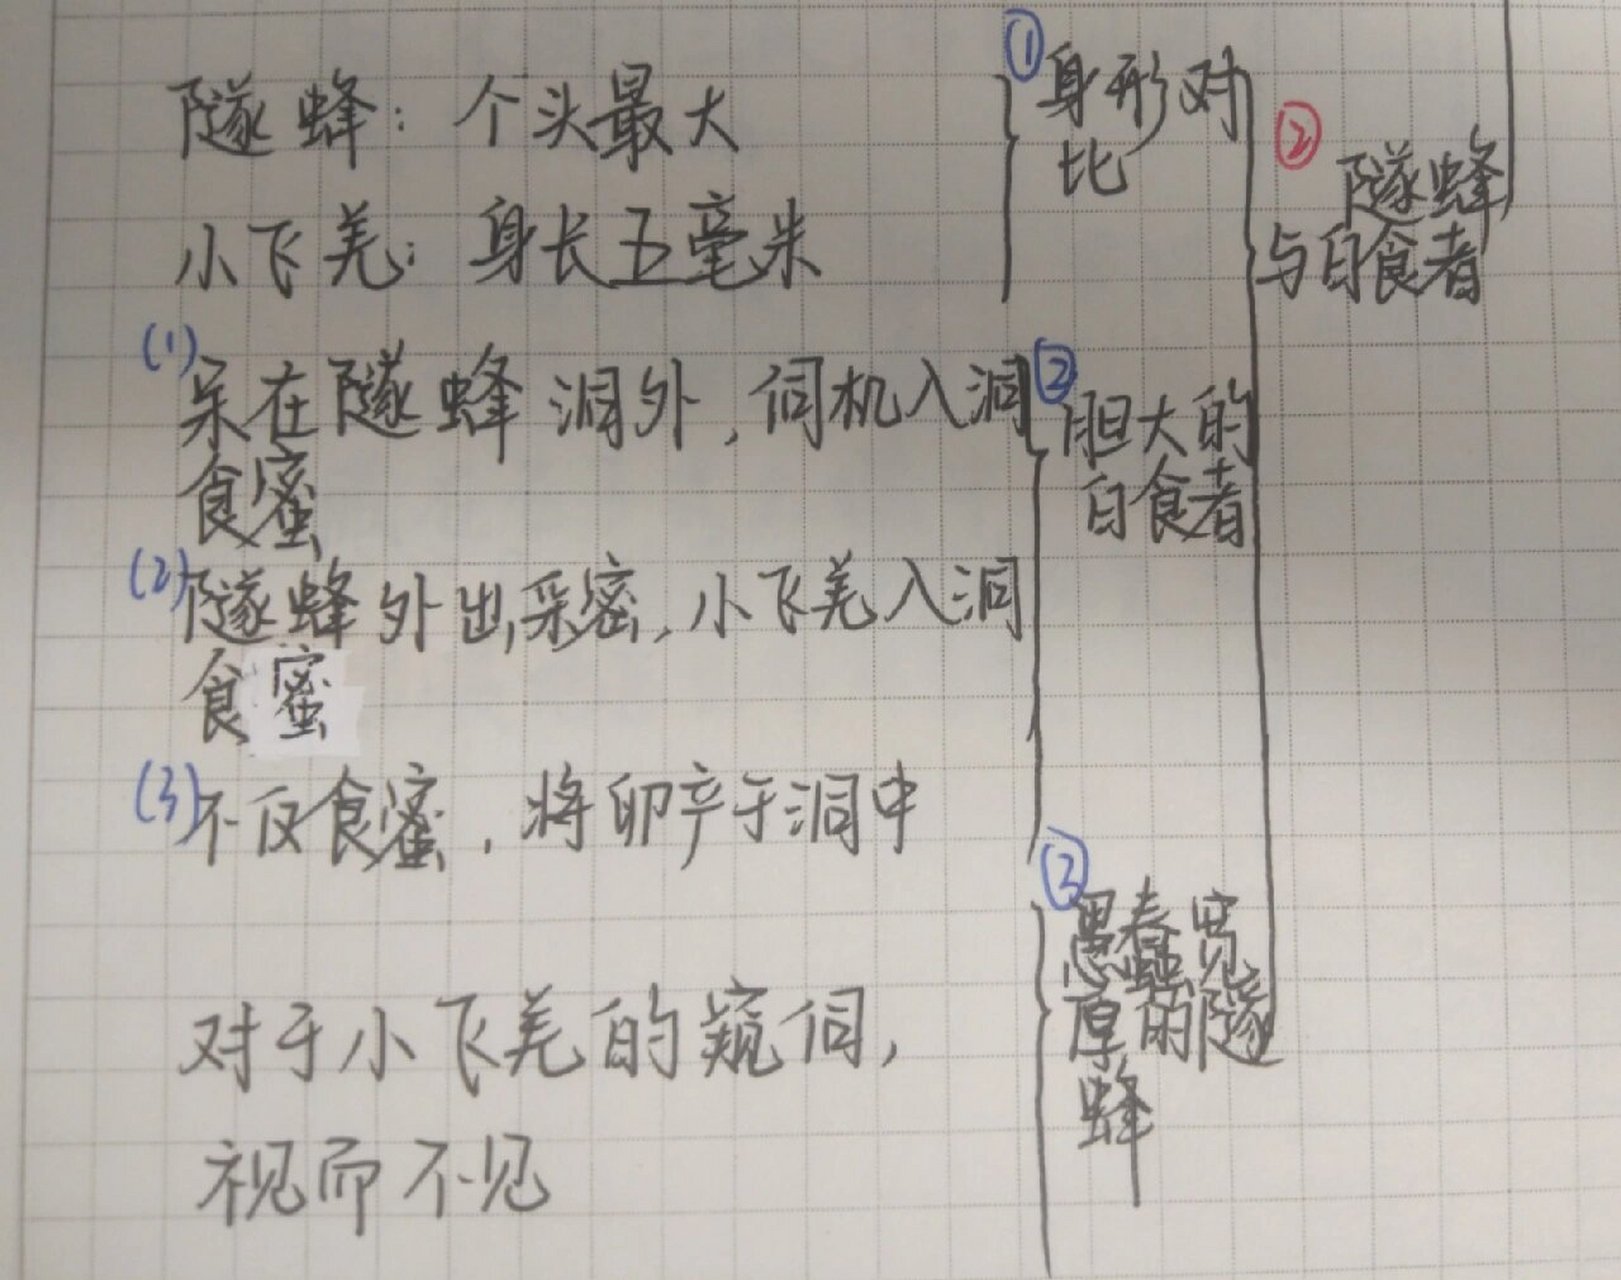 ①身形对
隧蜂：个头最大
比
②隧蜂
与白食者
小飞羌：身长五毫米
(1)呆在隧蜂洞外，伺机入洞
食蜜
②胆大的
白食者
(2)隧蜂外出采密，小飞羌入洞
食蜜
(3)不仅食蜜，将卵产于洞中
③愚蠢宽
厚的隧
蜂
对于小飞羌的窥伺，
视而不见